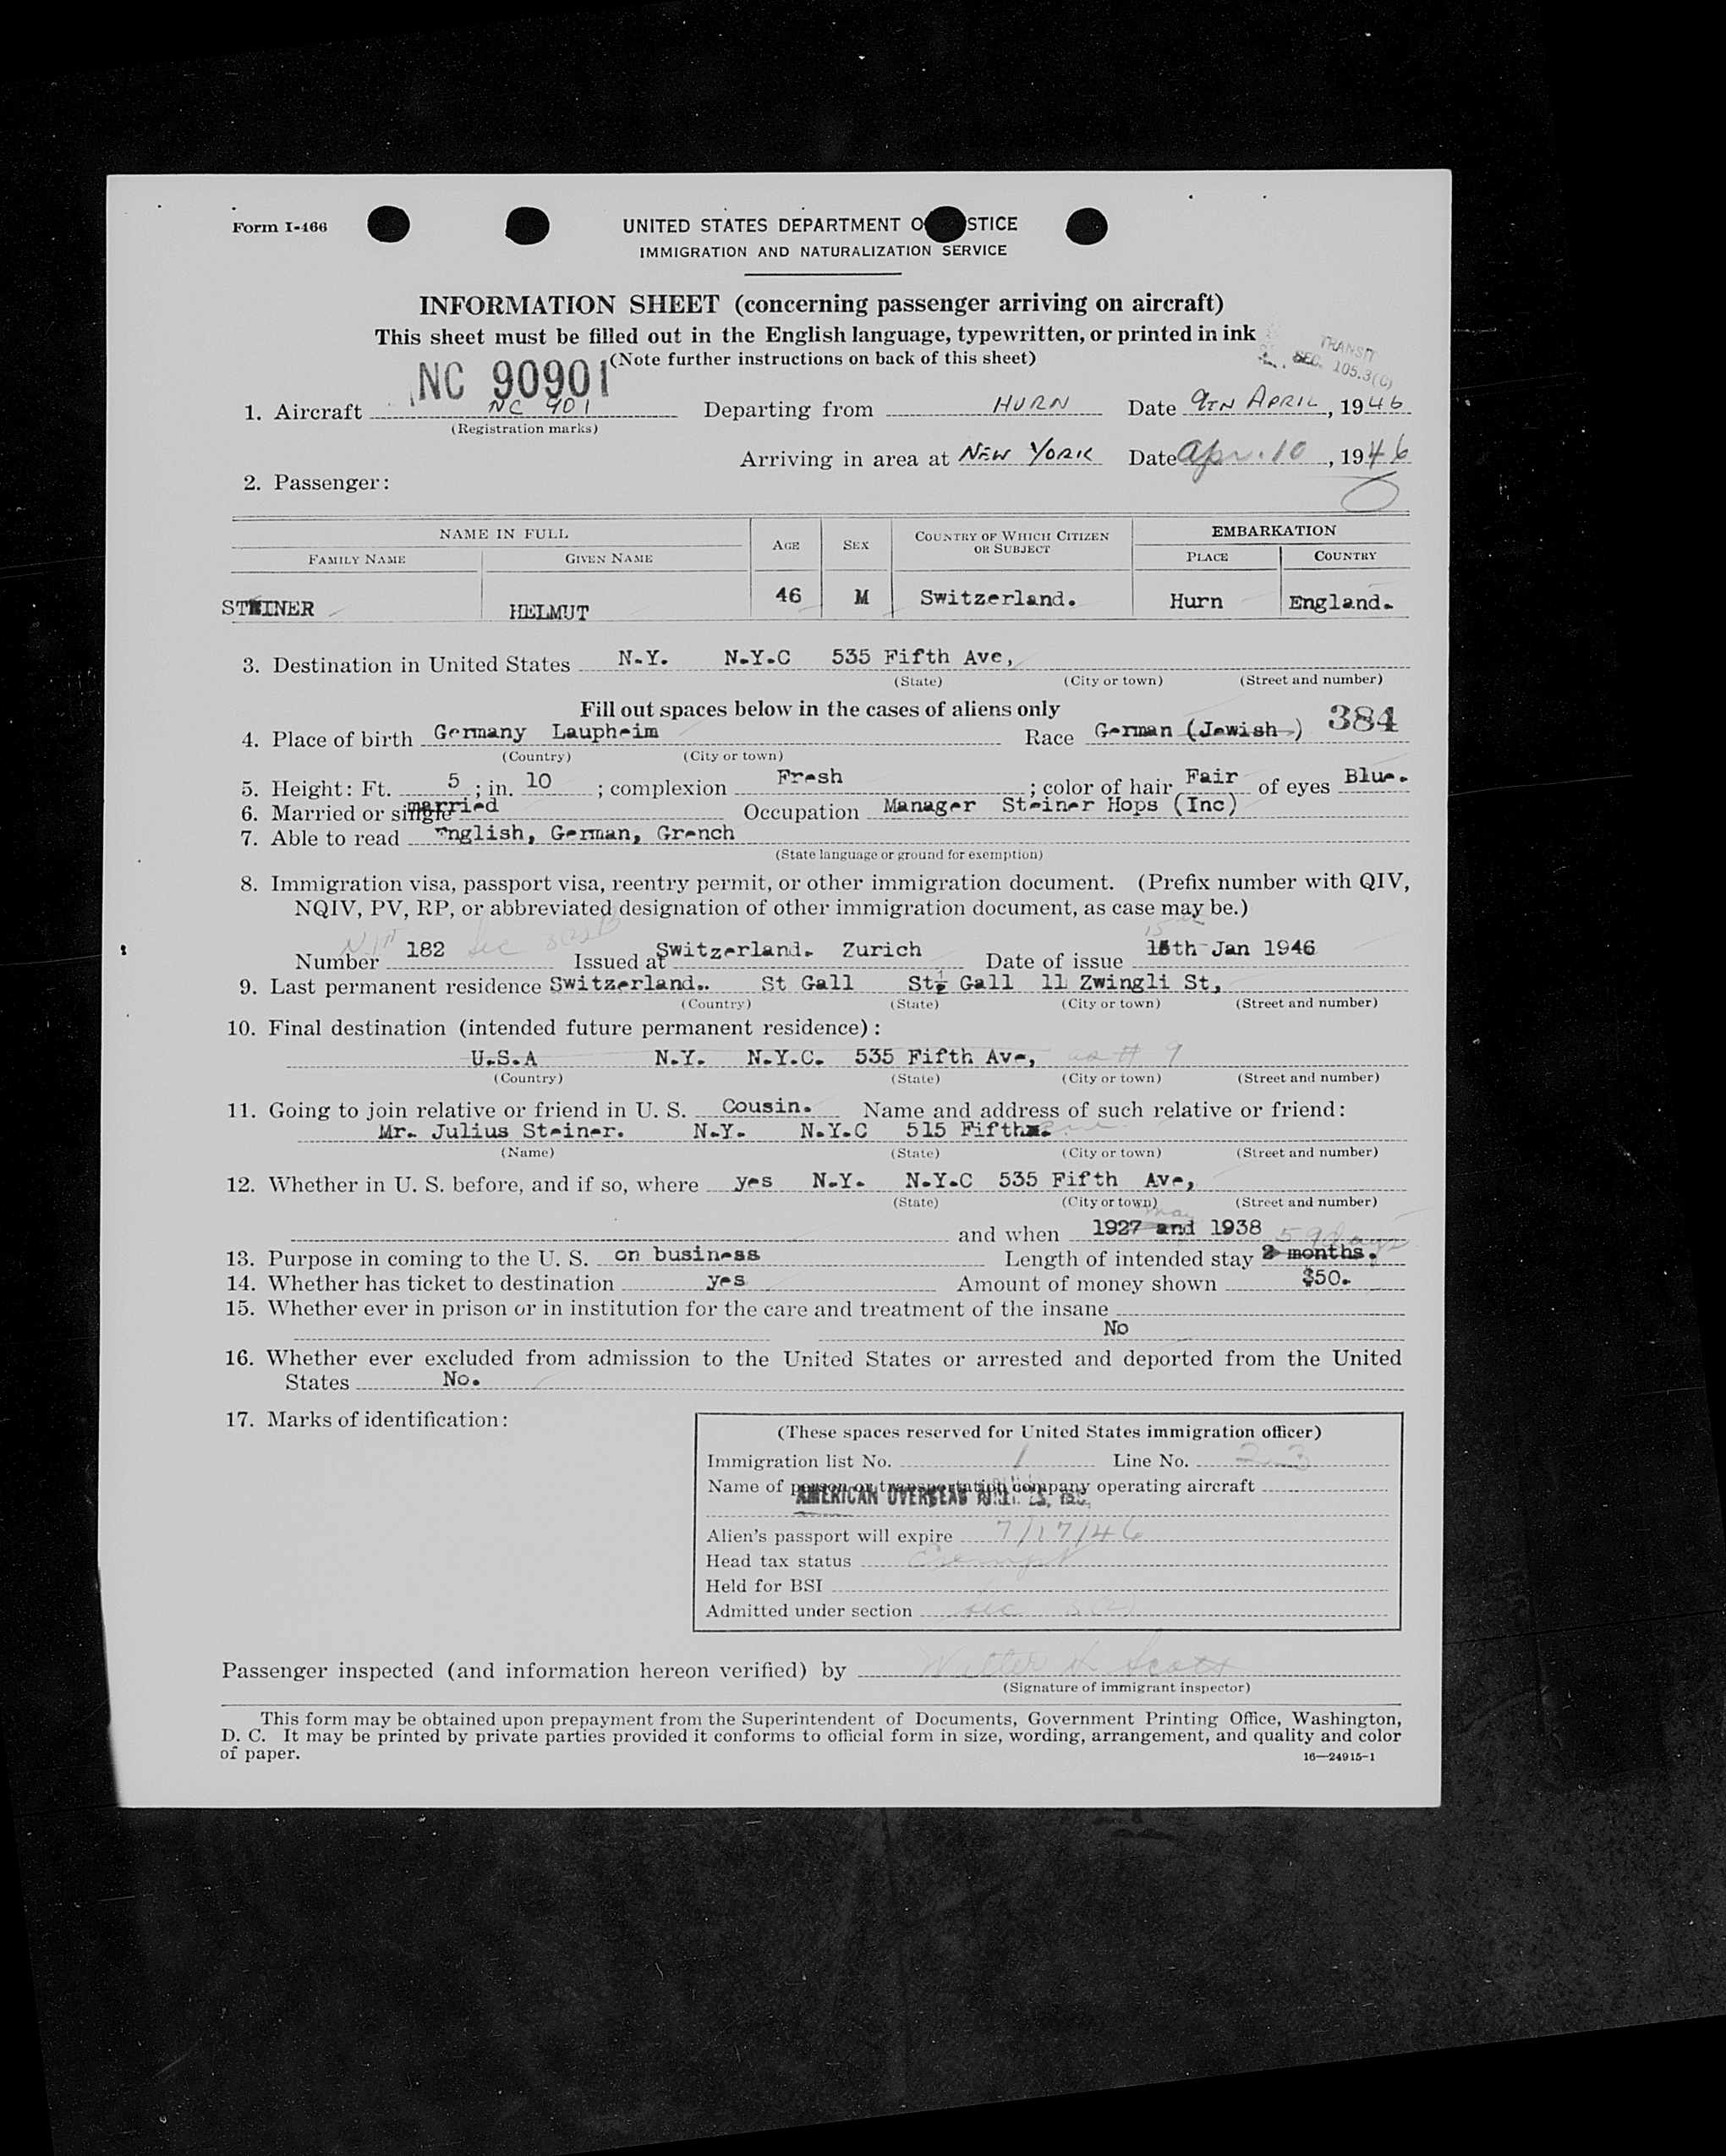 Form I-466
UNITED STATES DEPARTMENT O STICE
IMMIGRATION AND NATURALIZATION SERVICE
INFORMATION SHEET (concerning passenger arriving on aircraft)
This sheet must be filled out in the English language, typewritten, or printed in ink
(Note further instructions on back of this sheet)
TRANSIT
SEC. 105.3(C)
NC 90901
1. Aircraft NC 901 Departing from HURN Date 9TH APRIL, 1946
(Registration marks)
Arriving in area at NEW YORK Date Apr. 10, 1946
2. Passenger:
NAME IN FULL AGE SEX COUNTRY OF WHICH CITIZEN OR SUBJECT EMBARKATION
FAMILY NAME GIVEN NAME PLACE COUNTRY
STEINER HELMUT 46 M Switzerland. Hurn England.
3. Destination in United States N.Y. N.Y.C 535 Fifth Ave,
(State) (City or town) (Street and number)
Fill out spaces below in the cases of aliens only
384
4. Place of birth Germany Laupheim Race German (Jewish)
(Country) (City or town)
5. Height: Ft. 5; in. 10; complexion Fresh; color of hair Fair of eyes Blue.
6. Married or single married Occupation Manager Steiner Hops (Inc)
7. Able to read English, German, Grench
(State language or ground for exemption)
8. Immigration visa, passport visa, reentry permit, or other immigration document. (Prefix number with QIV,
NQIV, PV, RP, or abbreviated designation of other immigration document, as case may be.)
Number 182 Issued at Switzerland. Zurich Date of issue 15th Jan 1946
9. Last permanent residence Switzerland.. St Gall St, Gall 11 Zwingli St,
(Country) (State) (City or town) (Street and number)
10. Final destination (intended future permanent residence):
U.S.A N.Y. N.Y.C. 535 Fifth Ave, as # 9
(Country) (State) (City or town) (Street and number)
11. Going to join relative or friend in U. S. Cousin. Name and address of such relative or friend:
Mr. Julius Steiner. N.Y. N.Y.C 515 Fifth
(Name) (State) (City or town) (Street and number)
12. Whether in U. S. before, and if so, where yes N.Y. N.Y.C 535 Fifth Ave,
(State) (City or town) (Street and number)
and when 1927 and May 1938
13. Purpose in coming to the U. S. on business Length of intended stay 2 months. 59 days
14. Whether has ticket to destination yes Amount of money shown $50.
15. Whether ever in prison or in institution for the care and treatment of the insane
No
16. Whether ever excluded from admission to the United States or arrested and deported from the United
States No.
17. Marks of identification:
(These spaces reserved for United States immigration officer)
Immigration list No. 1 Line No. 23
Name of person or transportation company operating aircraft
AMERICAN OVERSEAS AIRLINES, INC.
Alien's passport will expire 7/17/46
Head tax status Exempt
Held for BSI
Admitted under section sec 3(2)
Passenger inspected (and information hereon verified) by Walter H Scott
(Signature of immigrant inspector)
This form may be obtained upon prepayment from the Superintendent of Documents, Government Printing Office, Washington,
D. C. It may be printed by private parties provided it conforms to official form in size, wording, arrangement, and quality and color
of paper.
16—24915-1